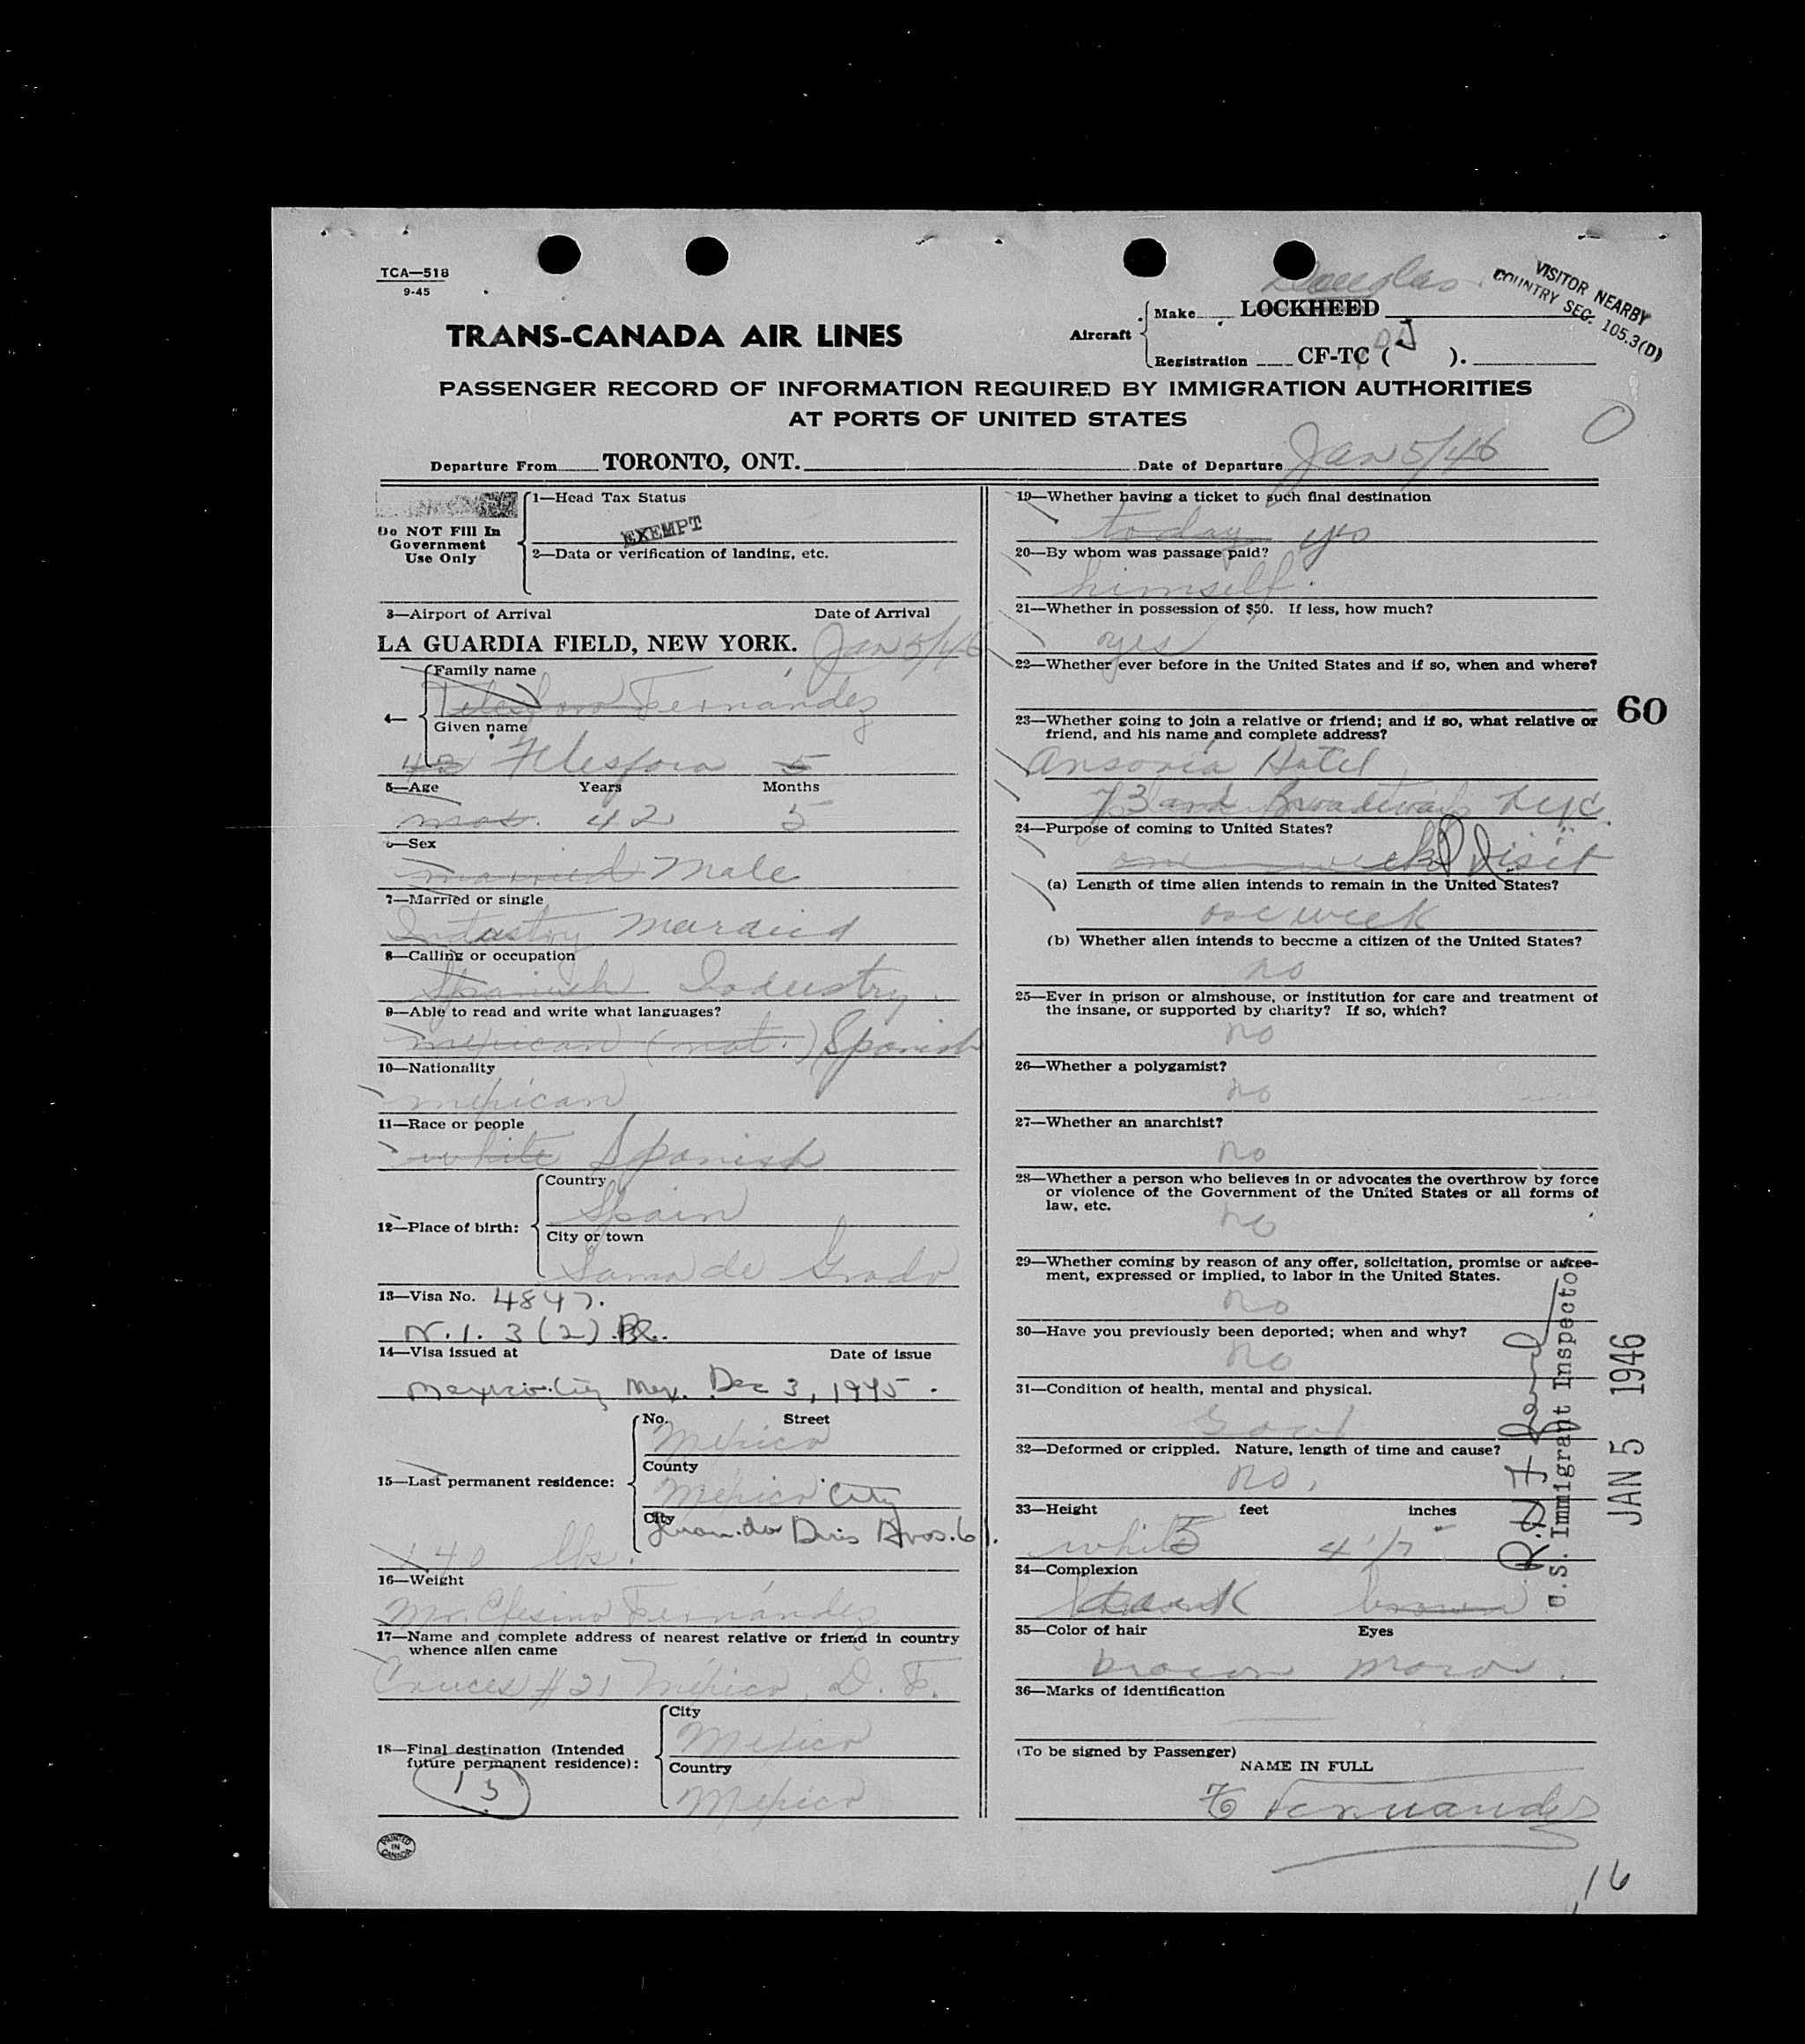 TCA—518
9-45
VISITOR NEARBY
COUNTRY SEC. 105.3(D)
Douglas
TRANS-CANADA AIR LINES
Aircraft
Make LOCKHEED
Registration CF-TC ( DJ ).
PASSENGER RECORD OF INFORMATION REQUIRED BY IMMIGRATION AUTHORITIES
AT PORTS OF UNITED STATES
Departure From TORONTO, ONT. Date of Departure Jan 5/46
Do NOT Fill In
Government
Use Only
1—Head Tax Status
EXEMPT
2—Data or verification of landing, etc.
3—Airport of Arrival Date of Arrival
LA GUARDIA FIELD, NEW YORK. Jan 5/46
4—
Family name
Telesforo Fernández
Given name
42 Telesforo 5
5—Age Years Months
42 5
6—Sex
married Male
7—Married or single
Industry Married
8—Calling or occupation
Spanish Industry
9—Able to read and write what languages?
mexican (nat.) Spanish
10—Nationality
mexican
11—Race or people
white Spanish
12—Place of birth:
Country
Spain
City or town
Sama de Grado
13—Visa No. 4847.
N.I. 3 (2)
14—Visa issued at Date of issue
Mexico City Mex. Dec 3, 1945.
15—Last permanent residence:
No. Street
Mexico
County
Mexico City
City
61.
140 lbs.
16—Weight
Mr. Fernández
17—Name and complete address of nearest relative or friend in country
whence alien came
#21 México, D. F.
18—Final destination (Intended
future permanent residence):
City
Mexico
Country
Mexico
13
PRINTED
IN
CANADA
19—Whether having a ticket to such final destination
today yes
20—By whom was passage paid?
himself.
21—Whether in possession of $50. If less, how much?
yes
22—Whether ever before in the United States and if so, when and where?
60
23—Whether going to join a relative or friend; and if so, what relative or
friend, and his name and complete address?
Ansonia Hotel
73 and Broadway NYC.
24—Purpose of coming to United States?
one week Visit
(a) Length of time alien intends to remain in the United States?
one week
(b) Whether alien intends to become a citizen of the United States?
no
25—Ever in prison or almshouse, or institution for care and treatment of
the insane, or supported by charity? If so, which?
no
26—Whether a polygamist?
no
27—Whether an anarchist?
no
28—Whether a person who believes in or advocates the overthrow by force
or violence of the Government of the United States or all forms of
law, etc.
no
29—Whether coming by reason of any offer, solicitation, promise or agree-
ment, expressed or implied, to labor in the United States.
no
30—Have you previously been deported; when and why?
no
31—Condition of health, mental and physical.
Good
32—Deformed or crippled. Nature, length of time and cause?
no.
33—Height feet inches
white 5
34—Complexion
brown
35—Color of hair Eyes
brown
36—Marks of identification
(To be signed by Passenger)
NAME IN FULL
Fernandez
U.S. Immigrant Inspector
JAN 5 1946
16